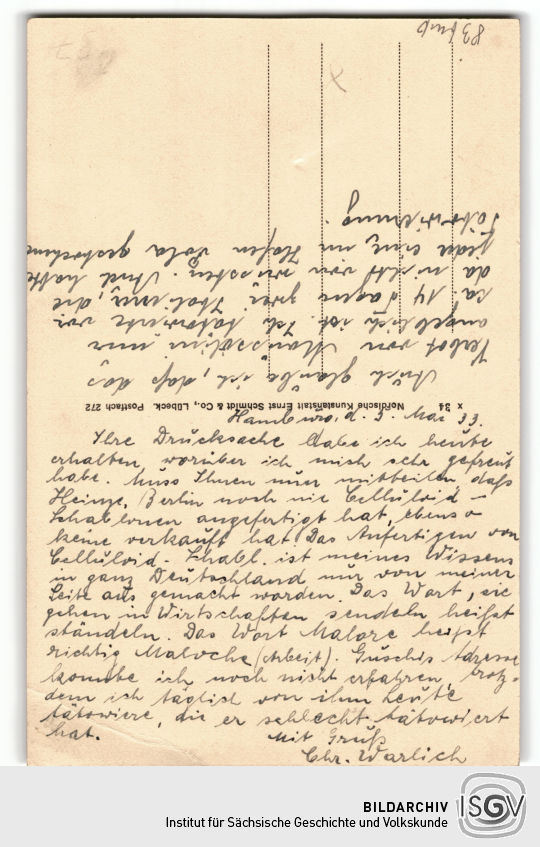 Hamburg, d. 3. Mai 33.
Ihre Drucksache habe ich heute
erhalten, worüber ich mich sehr gefreut
habe. Muss Ihnen nur mitteilen, daß
Heinze, Berlin noch nie Celluloid-
Schablonen angefertigt hat, ebenso
keine verkauft hat. Das Anfertigen von
Celluloid-Schabl. ist meines Wissens
in ganz Deutschland nur von meiner
Seite aus gemacht worden. Das Wort, sie
gehen in Wirtschaften sendeln heißt
ständeln. Das Wort Malore heißt
richtig Maloche (Arbeit). Guschis Adresse
konnte ich noch nicht erfahren, trotz-
dem ich täglich von ihm Leute
tätowiere, die er schlecht tätowiert
hat. Mit Gruß
Chr. Warlich
Auch glaube ich, daß das
Verbot von Mussolini nur
angeblich ist. Ich tätowierte vor
ca. 14 Tagen zwei Italiener, die
da nicht von wussten. Und hatte
jeder eine im Hafen Pola gestochene
Tätowierung.
x 34 Nordische Kunstanstalt Ernst Schmidt & Co., Lübeck. Postfach 272
BILDARCHIV
Institut für Sächsische Geschichte und Volkskunde
ISGV